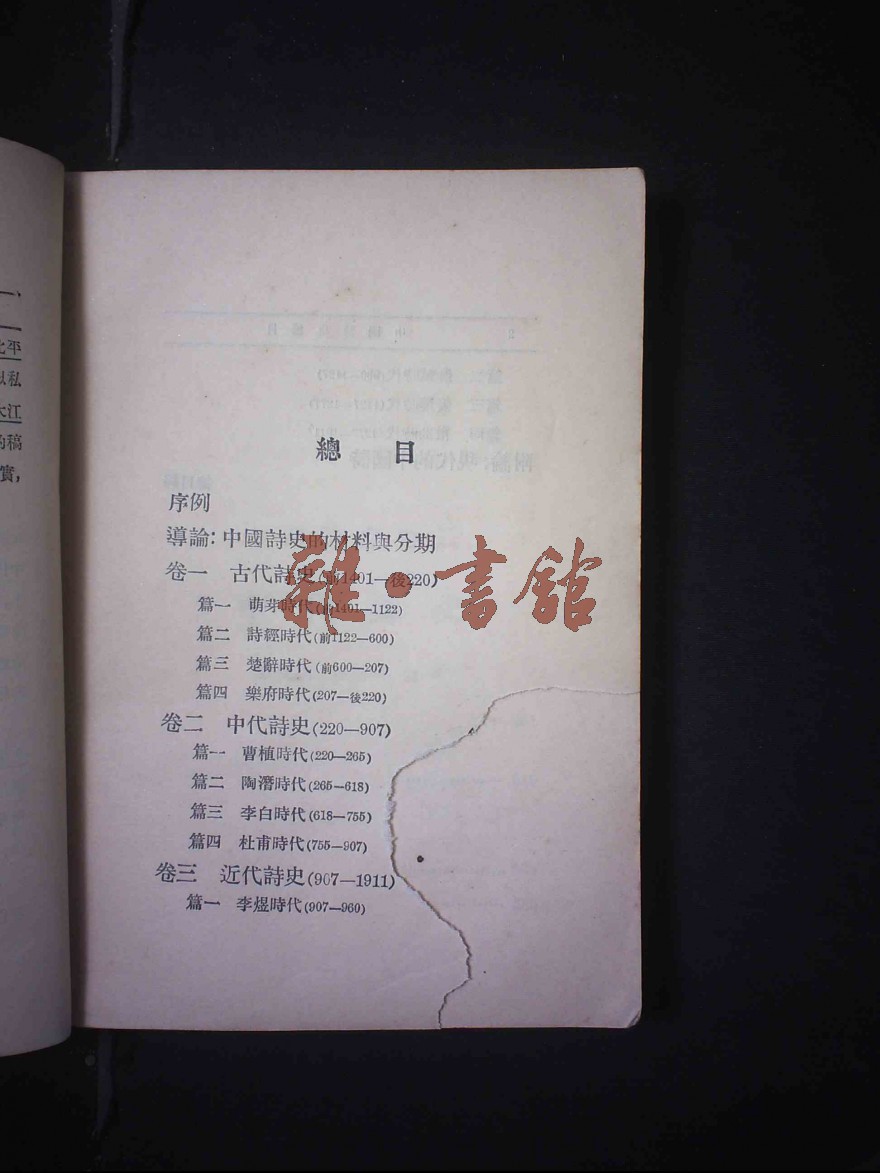 總目
序例
導論：中國詩史的材料與分期
卷一 古代詩史(前1401—後220)
篇一 萌芽時代(前1401—1122)
篇二 詩經時代(前1122—600)
篇三 楚辭時代(前600—207)
篇四 樂府時代(207—後220)
卷二 中代詩史(220—907)
篇一 曹植時代(220—265)
篇二 陶潛時代(265—618)
篇三 李白時代(618—755)
篇四 杜甫時代(755—907)
卷三 近代詩史(907—1911)
篇一 李煜時代(907—960)
雜·書館
北平
以私
大江
的稿
實，